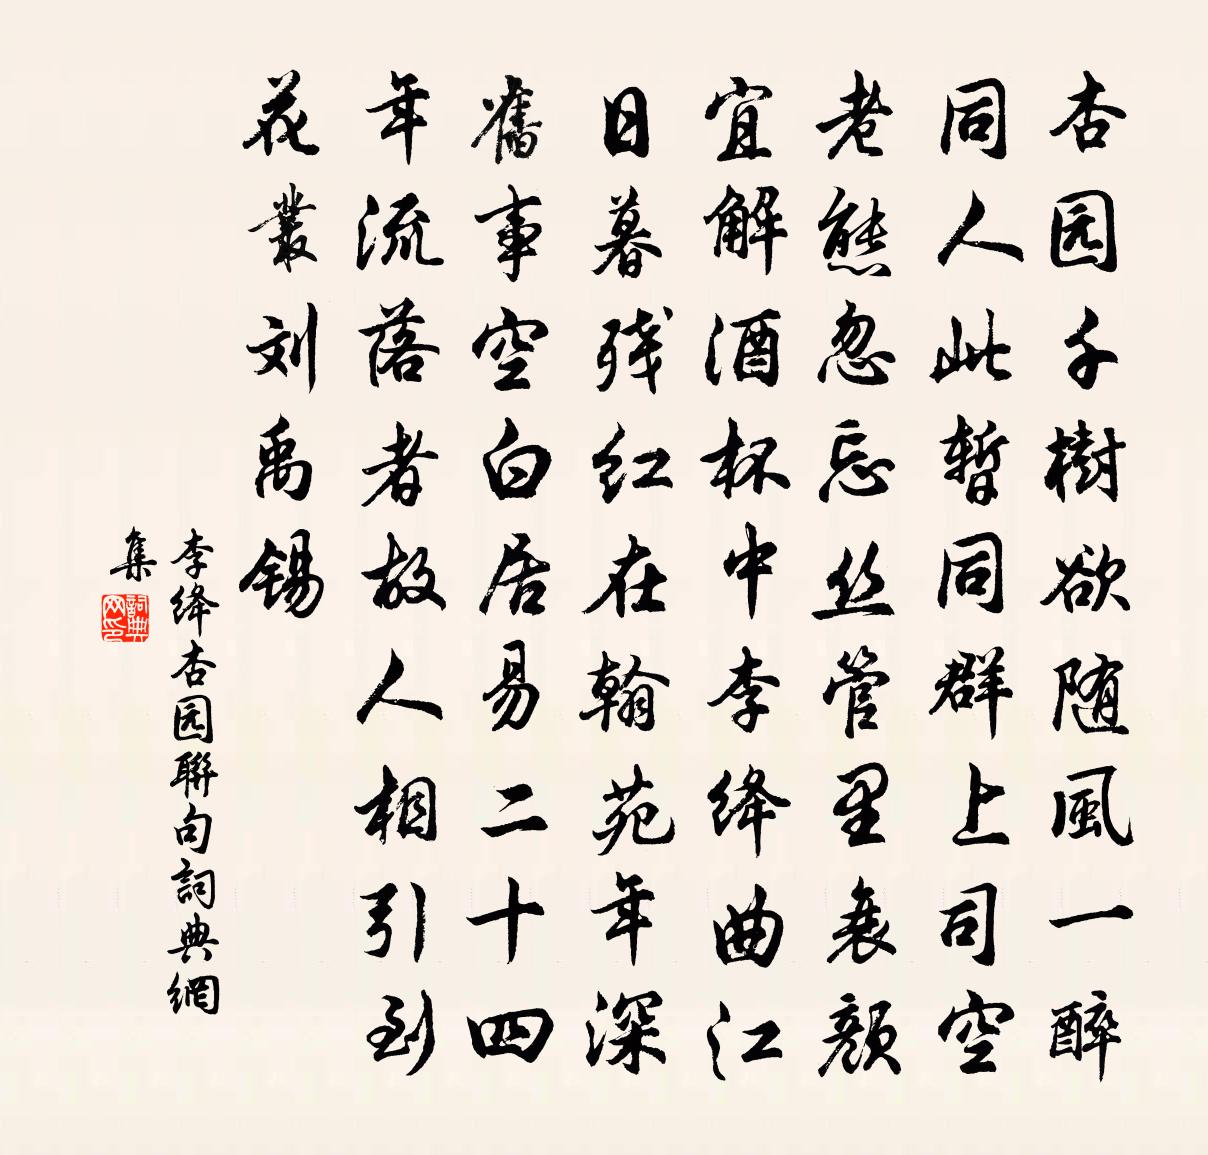 杏园千樹欲随風一醉
同人此暫同群上司空
老態忽忘丝管里衰颜
宜解酒杯中李绛曲江
日暮残红在翰苑年深
舊事空白居易二十四
年流落者故人相引到
花叢刘禹锡
李绛杏园聯句詞典網
集
詞典网印